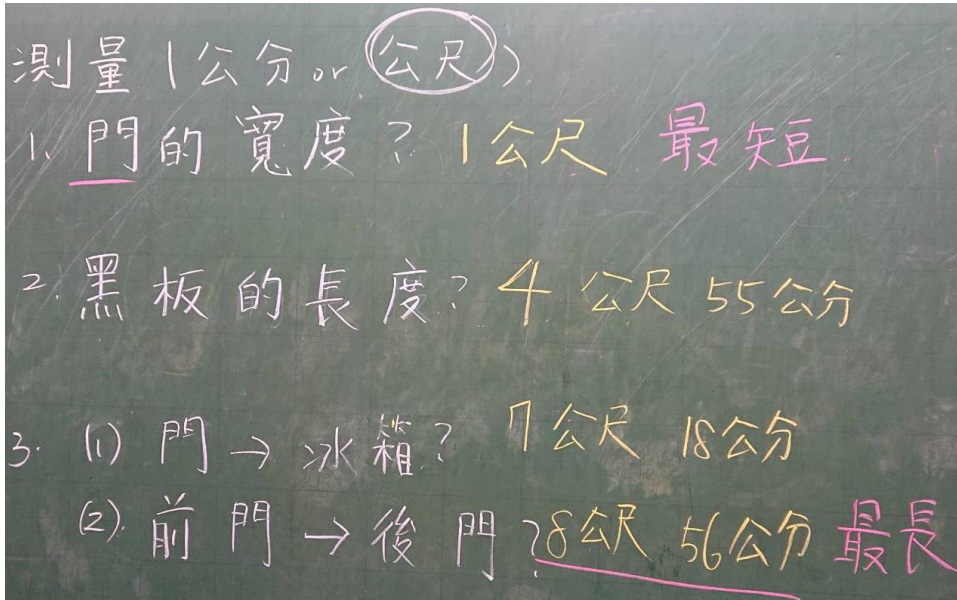 測量(公分or公尺)
1. 門的寬度? 1公尺 最短
2. 黑板的長度? 4公尺55公分
3. (1) 門→冰箱? 7公尺 18公分
(2). 前門→後門? 8公尺 56公分 最長